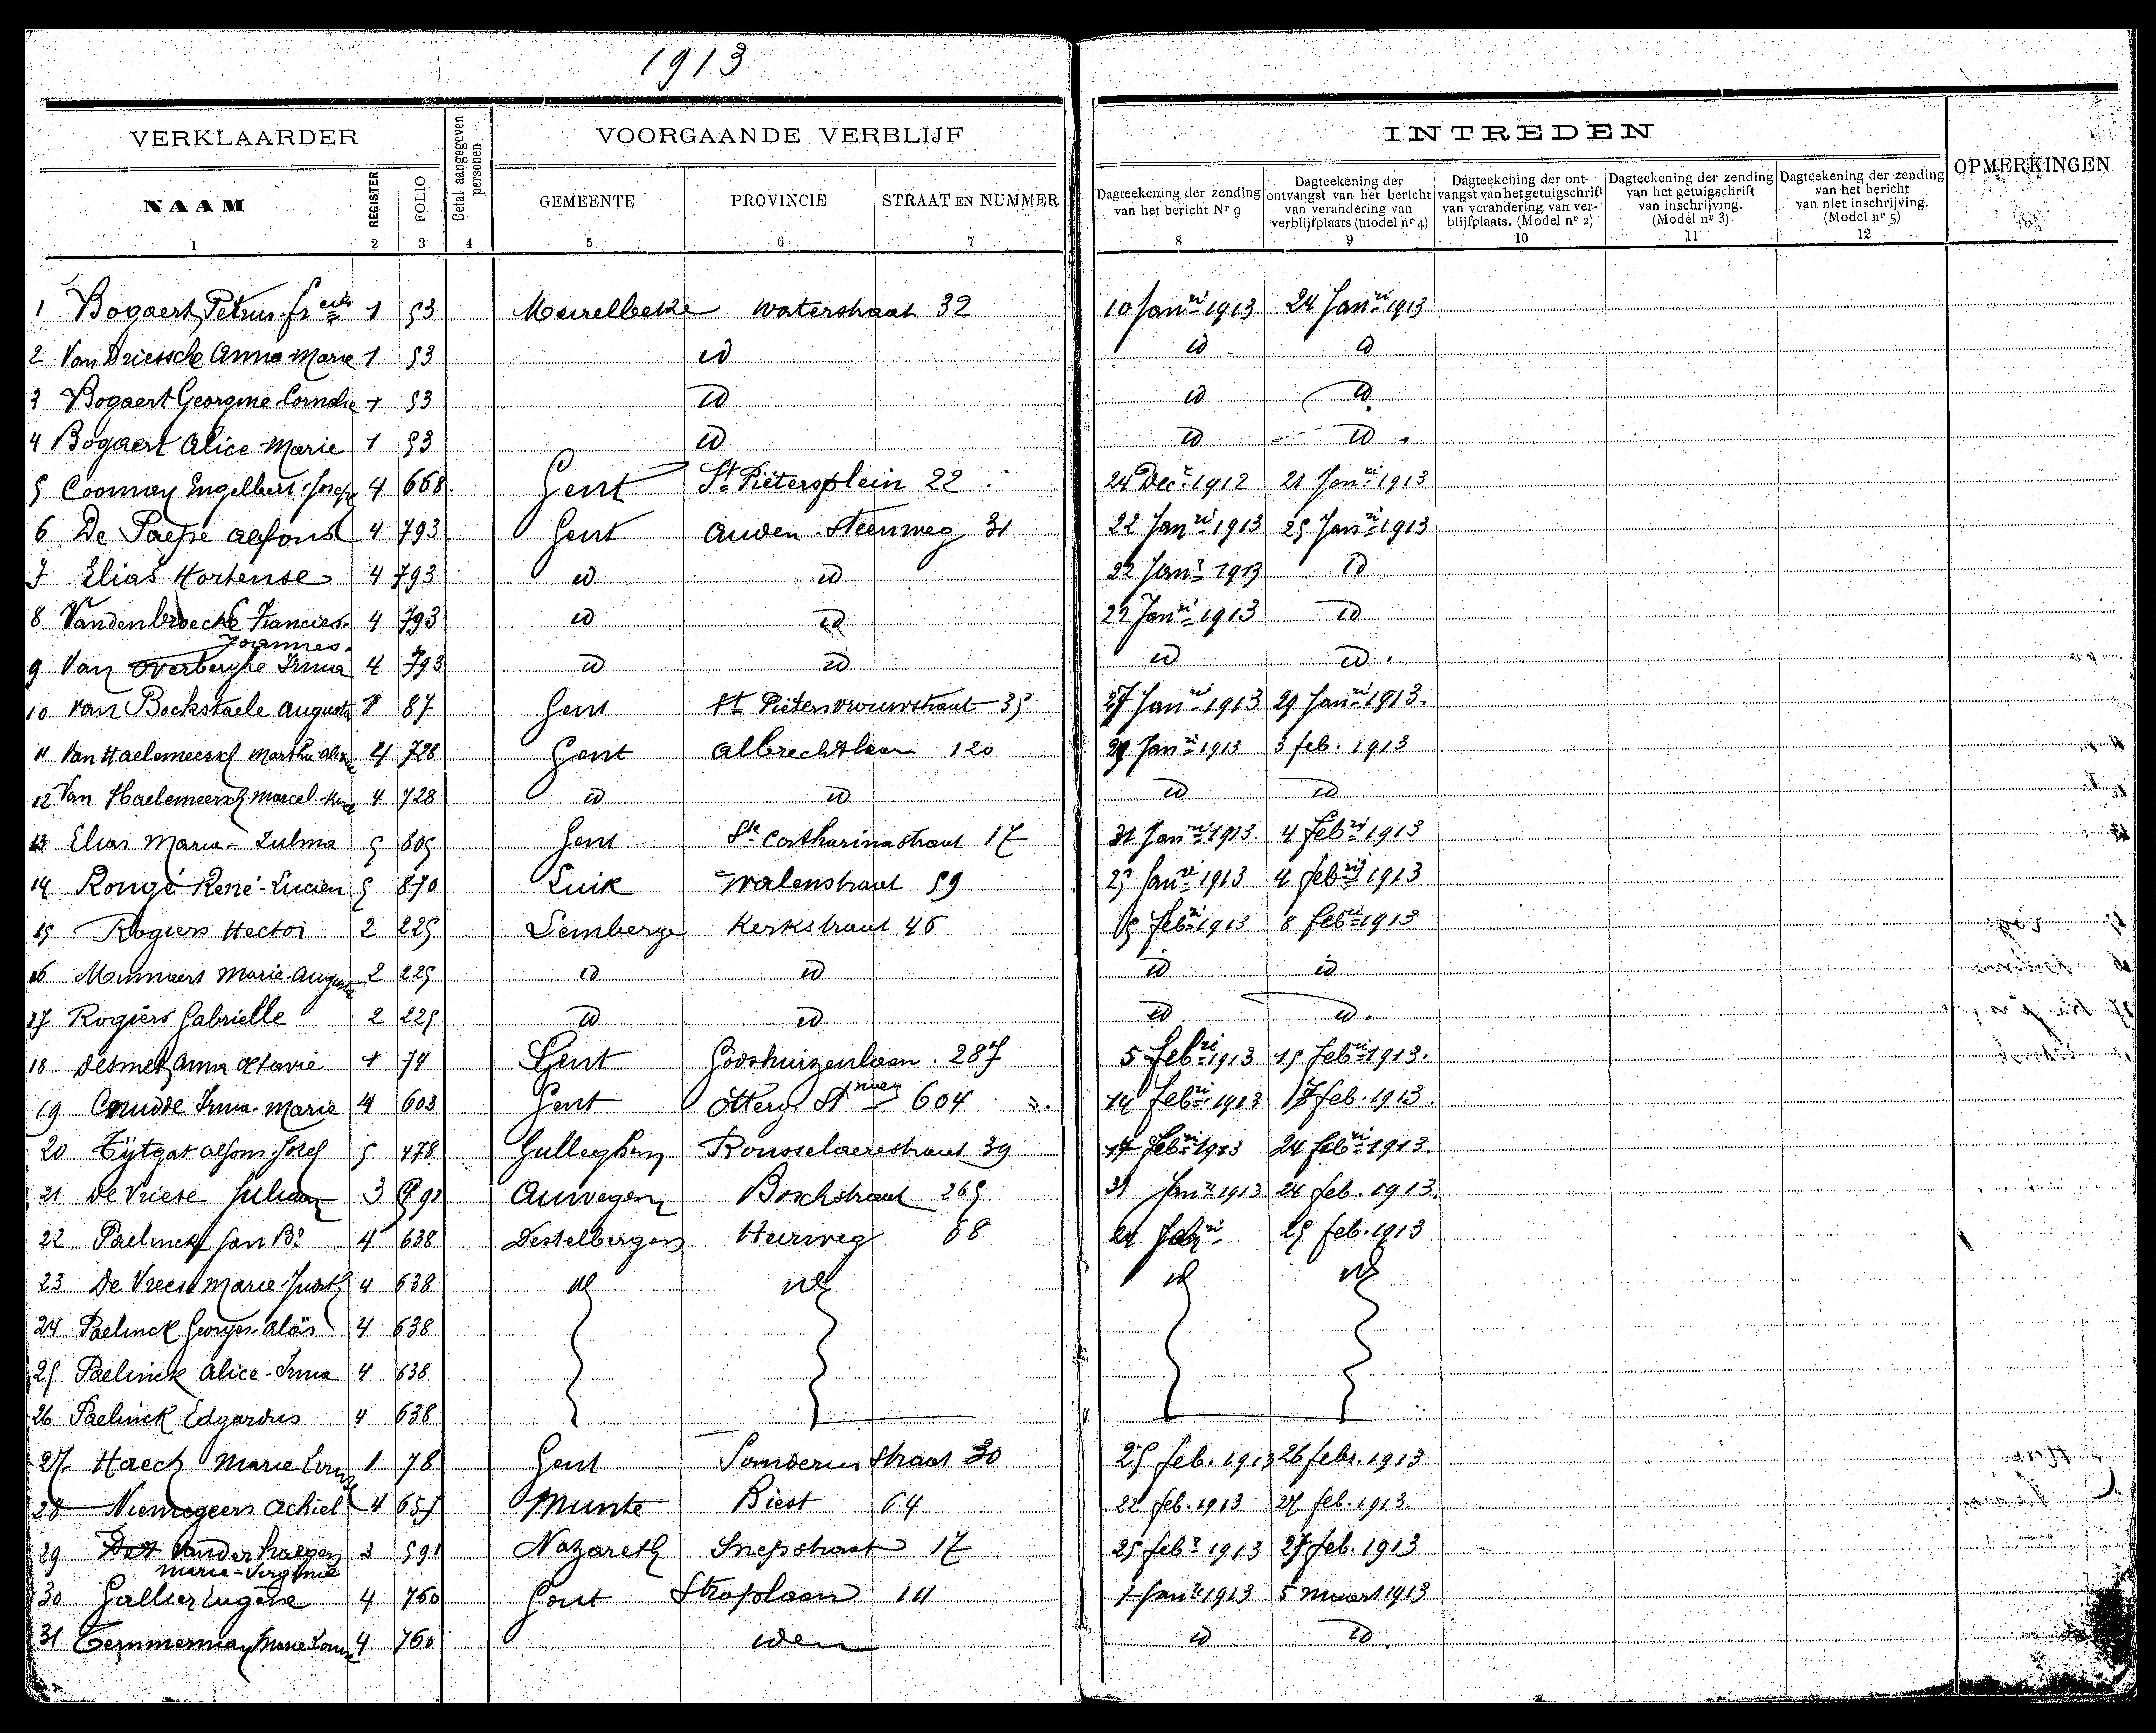 1913
VERKLAARDER
Getal aangegeven personen
VOORGAANDE VERBLIJF
INTREDEN
OPMERKINGEN
NAAM
REGISTER
FOLIO
GEMEENTE
PROVINCIE
STRAAT EN NUMMER
Dagteekening der zending van het bericht Nr 9
Dagteekening der ontvangst van het bericht van verandering van verblijfplaats (model nr 4)
Dagteekening der ontvangst van het getuigschrift van verandering van verblijfplaats. (Model nr 2)
Dagteekening der zending van het getuigschrift van inschrijving. (Model nr 3)
Dagteekening der zending van het bericht van niet inschrijving. (Model nr 5)
1 2 3 4 5 6 7 8 9 10 11 12
1 Bogaert Petrus 1 53 Meirelbeke Waterstraat 32 10 Janri 1913 24 Janri 1913
2 Van Driessche Anna Marie 1 53 id id id
3 Bogaert Georgine 1 53 id id id
4 Bogaert Alice-Marie 1 53 id id id
5 Engelbert-Joseph 4 668 Gent St Pietersplein 22 24 Dec. 1912 21 Janri 1913
6 De Paepe Alfons 4 793 Gent Steenweg 31 22 Janri 1913 25 Janri 1913
7 Elias Hortense 4 793 id id 22 Janr 1913 id
8 Vandenbroecke Joannes 4 793 id id 22 Janri 1913 id
9 Van Overberghe Irma 4 793 id id id id
10 Van Bockstaele Augusta 87 Gent 27 Janri 1913 29 Janri 1913.
11 Van Haelemeersch Martha 4 728 Gent Albrechtlaan 120 29 Janri 1913 3 feb. 1913
12 Van Haelemeersch Marcel 4 728 id id id id
13 Elias Maria-Zulma 5 805 Gent Ste Catharinastraat 17 31 Janri 1913. 4 Febri 1913
14 Rongé René-Lucien 5 870 Luik Walenstraat 59 25 Janri 1913 4 febrij 1913
15 Rogiers Hector 2 225 Lemberge Kerkstraat 46 febri 1913 8 Febri 1913
16 Marie-Auguste 2 225 id id id id
17 Rogiers Gabrielle 2 225 id id id id.
18 Desmet Anna Octavie 1 74 Gent Godshuizenlaan. 287 5 Febri 1913 15 Febri 1913.
19 Cnudde Irma-Marie 4 603 Gent Otterg. Stweg 604 14 Febri 1913 feb. 1913.
20 Tÿtgat Alfons-Jozef 5 478 Gulleghem Rousselaerestraat 39 17 Febri 1913 24 Febri 1913.
21 De Vriese Juliaan 3 Auwegem Boschstraat 265 31 Janri 1913 24 feb. 1913.
22 Paelinck Jan Bte 4 638 Destelbergen Heirweg 68 25 feb. 1913
23 De Vreese Marie-Judith 4 638 id id id id
24 Paelinck Georges-Aloïs 4 638
25 Paelinck Alice-Irma 4 638
26 Paelinck Edgardus 4 638
27 Haeck Marie Louise 1 78 Gent straat 30 25 feb. 1913 26 febr. 1913
28 Niemegeers Achiel 4 651 Munte Biest 64 22 feb. 1913 27 feb. 1913.
29 Vanderhaegen Marie-Virginie 3 591 Nazareth Snepstraat 17 25 febr 1913 27 feb. 1913
30 Gallier Eugène 4 760 Gent Stroplaan 14 1 Janri 1913 5 maart 1913
31 Temmerman Marie Louise 4 760 idem id id.